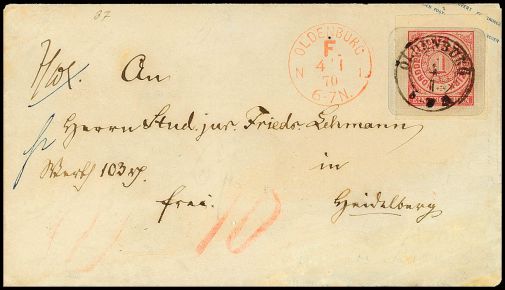 07
OLDENBURG
F.
4 1
70
N 1
6-7N.
OLDENBURG
An
Herrn Stud. jur. Frieds. Lehmann
Werth 103
in
frei.
Heidelberg
10